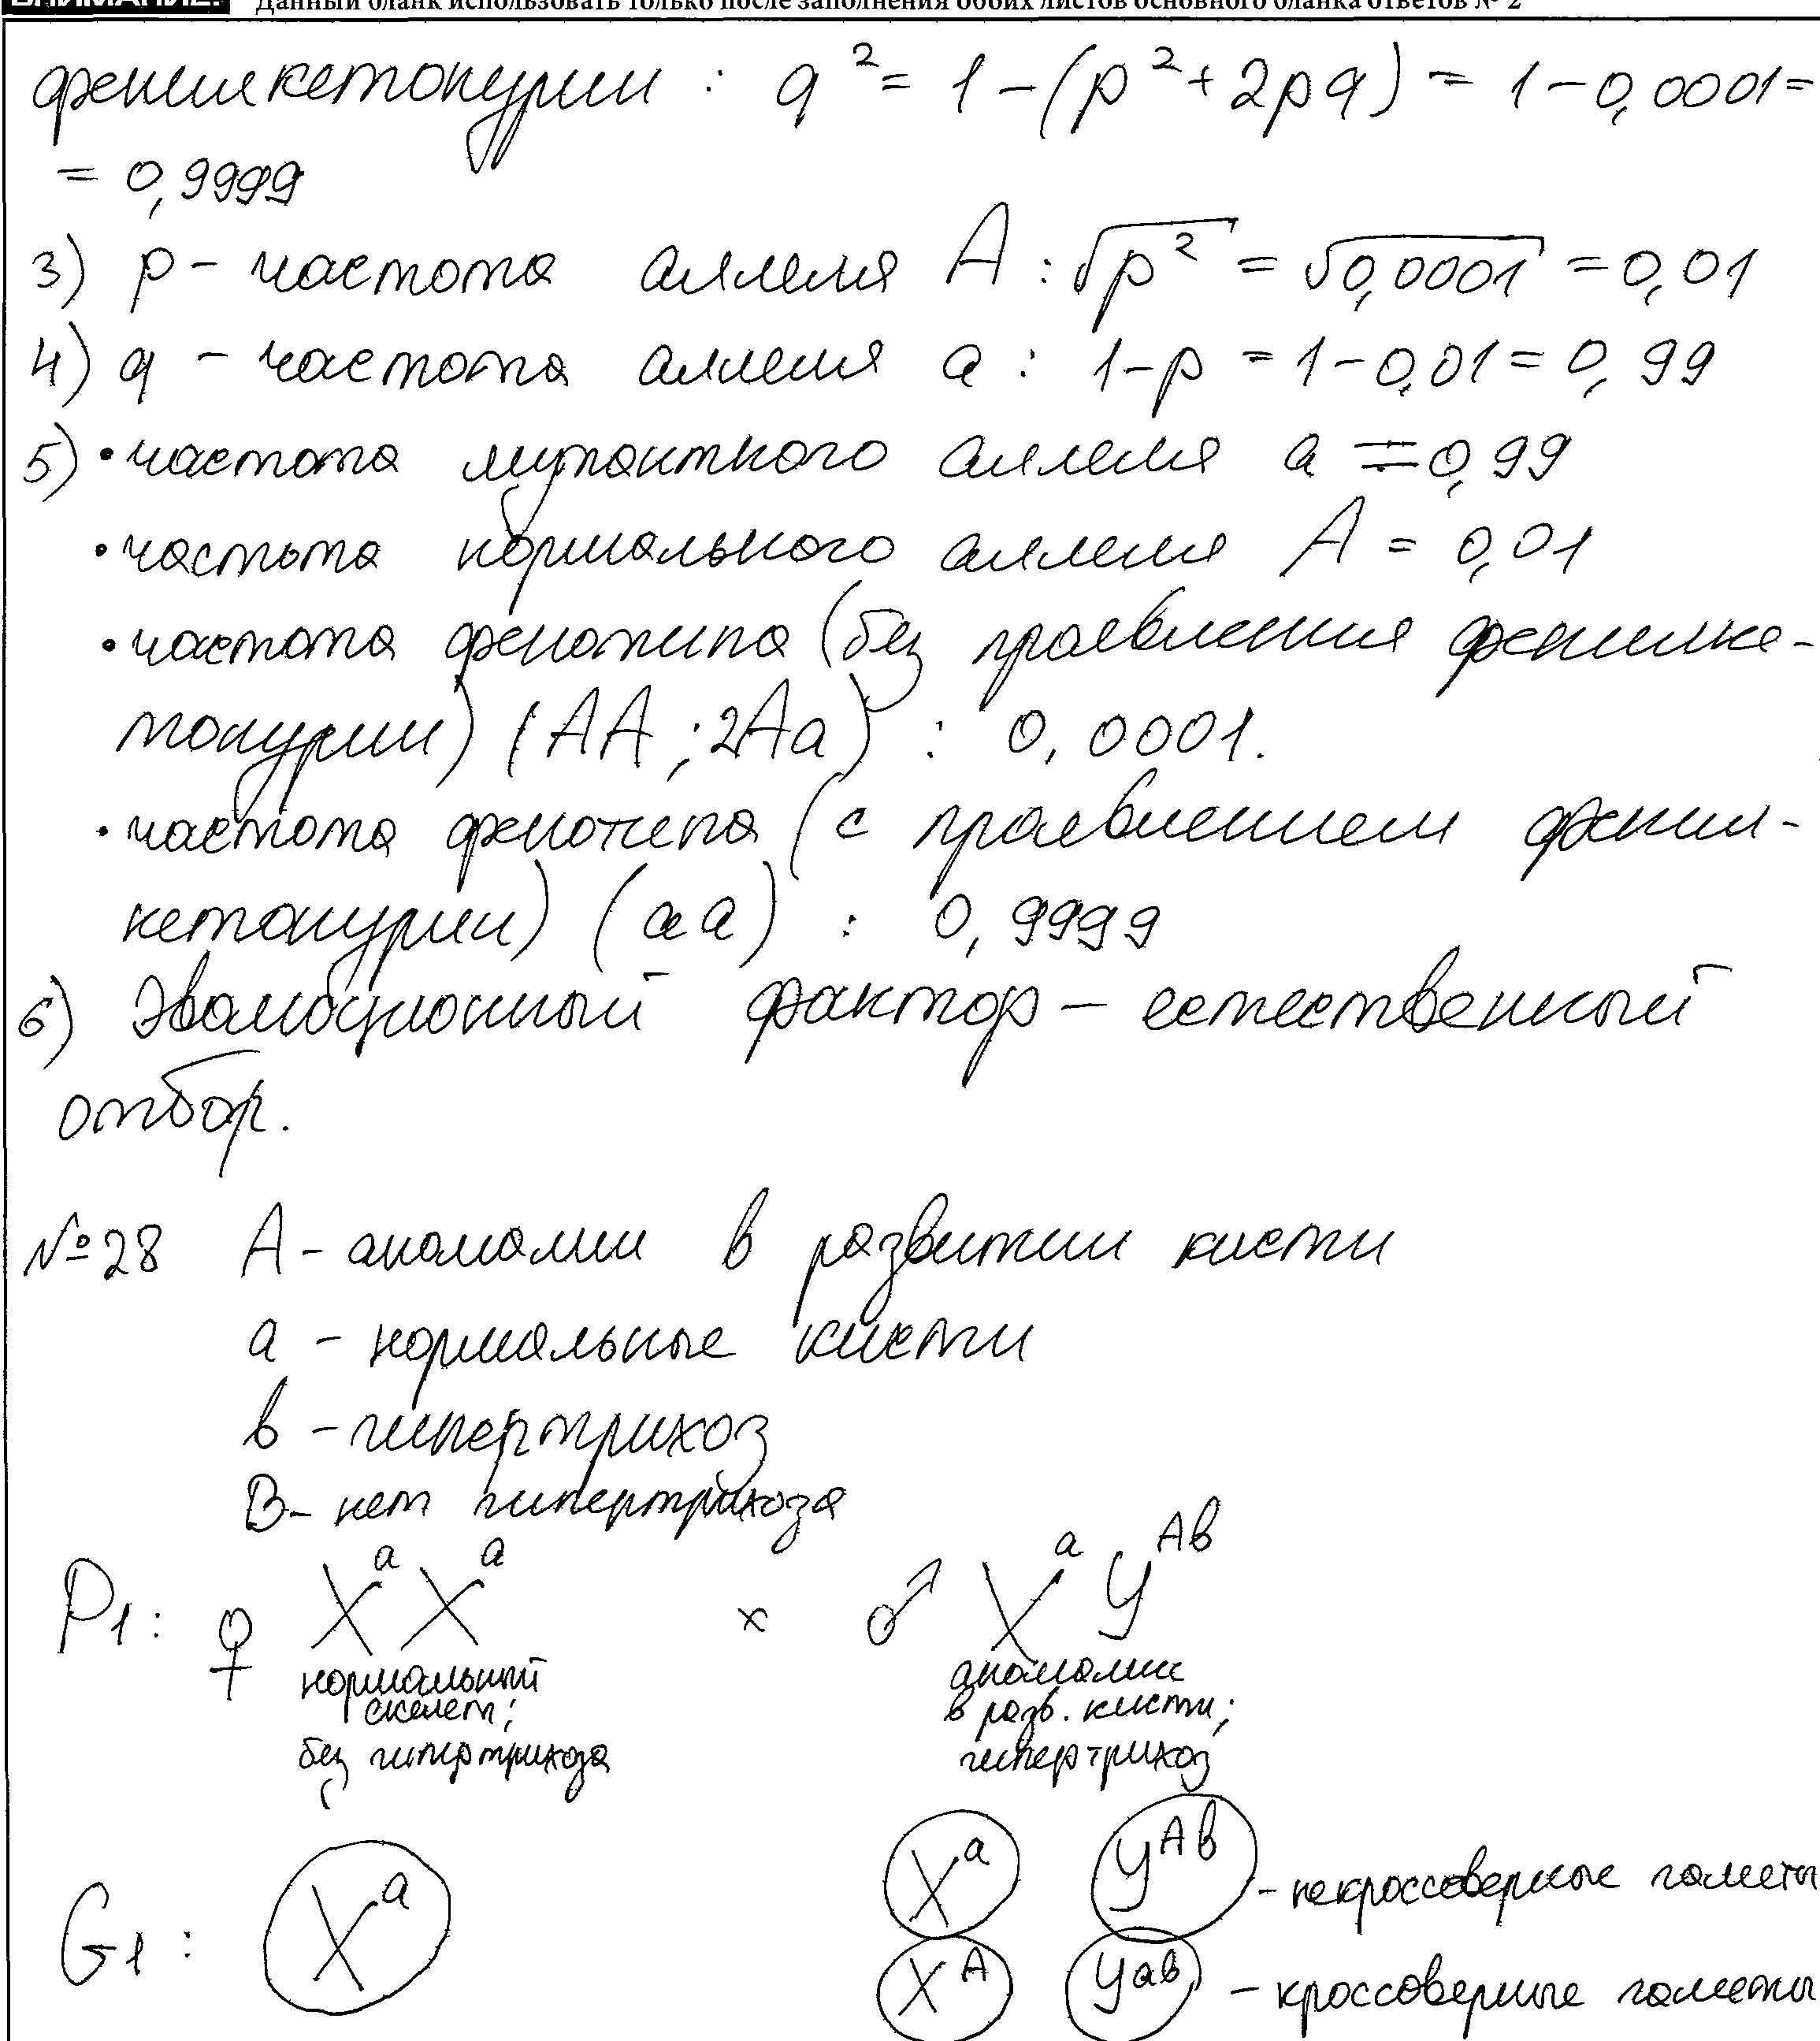 Данный бланк использовать только после заполнения обоих листов основного бланка ответов № 2
фенилкетонурии : q² = 1 – (p² + 2pq) = 1 – 0,0001 =
= 0,9999
3) p – частота аллеля A : √p² = √0,0001 = 0,01
4) q – частота аллеля a : 1 – p = 1 – 0,01 = 0,99
5) • частота мутантного аллеля a = 0,99
• частота нормального аллеля A = 0,01
• частота фенотипа (без проявления фенилке-
тонурии) (AA ; 2Aa) : 0,0001.
• частота фенотипа (с проявлением фенил-
кетонурии) (aa) : 0,9999
6) Эволюционный фактор – естественный
отбор.
№28 A – аномалии в развитии кисти
a – нормальные кисти
b – гипертрихоз
B – нет гипертрихоза
P1 : ♀ XᵃXᵃ × ♂ XᵃYᴬᵇ
нормальный аномалии
скелет; в разв. кисти;
без гипертрихоза гипертрихоз
Xᵃ Yᴬᵇ – некроссоверные гаметы
G1 : Xᵃ
Xᴬ Yᵃᵇ – кроссоверные гаметы